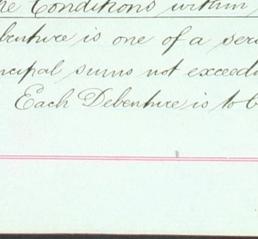 he Conditions within
benture is one of a seri
ncipal sums not exceedi
Each Debenture is to b